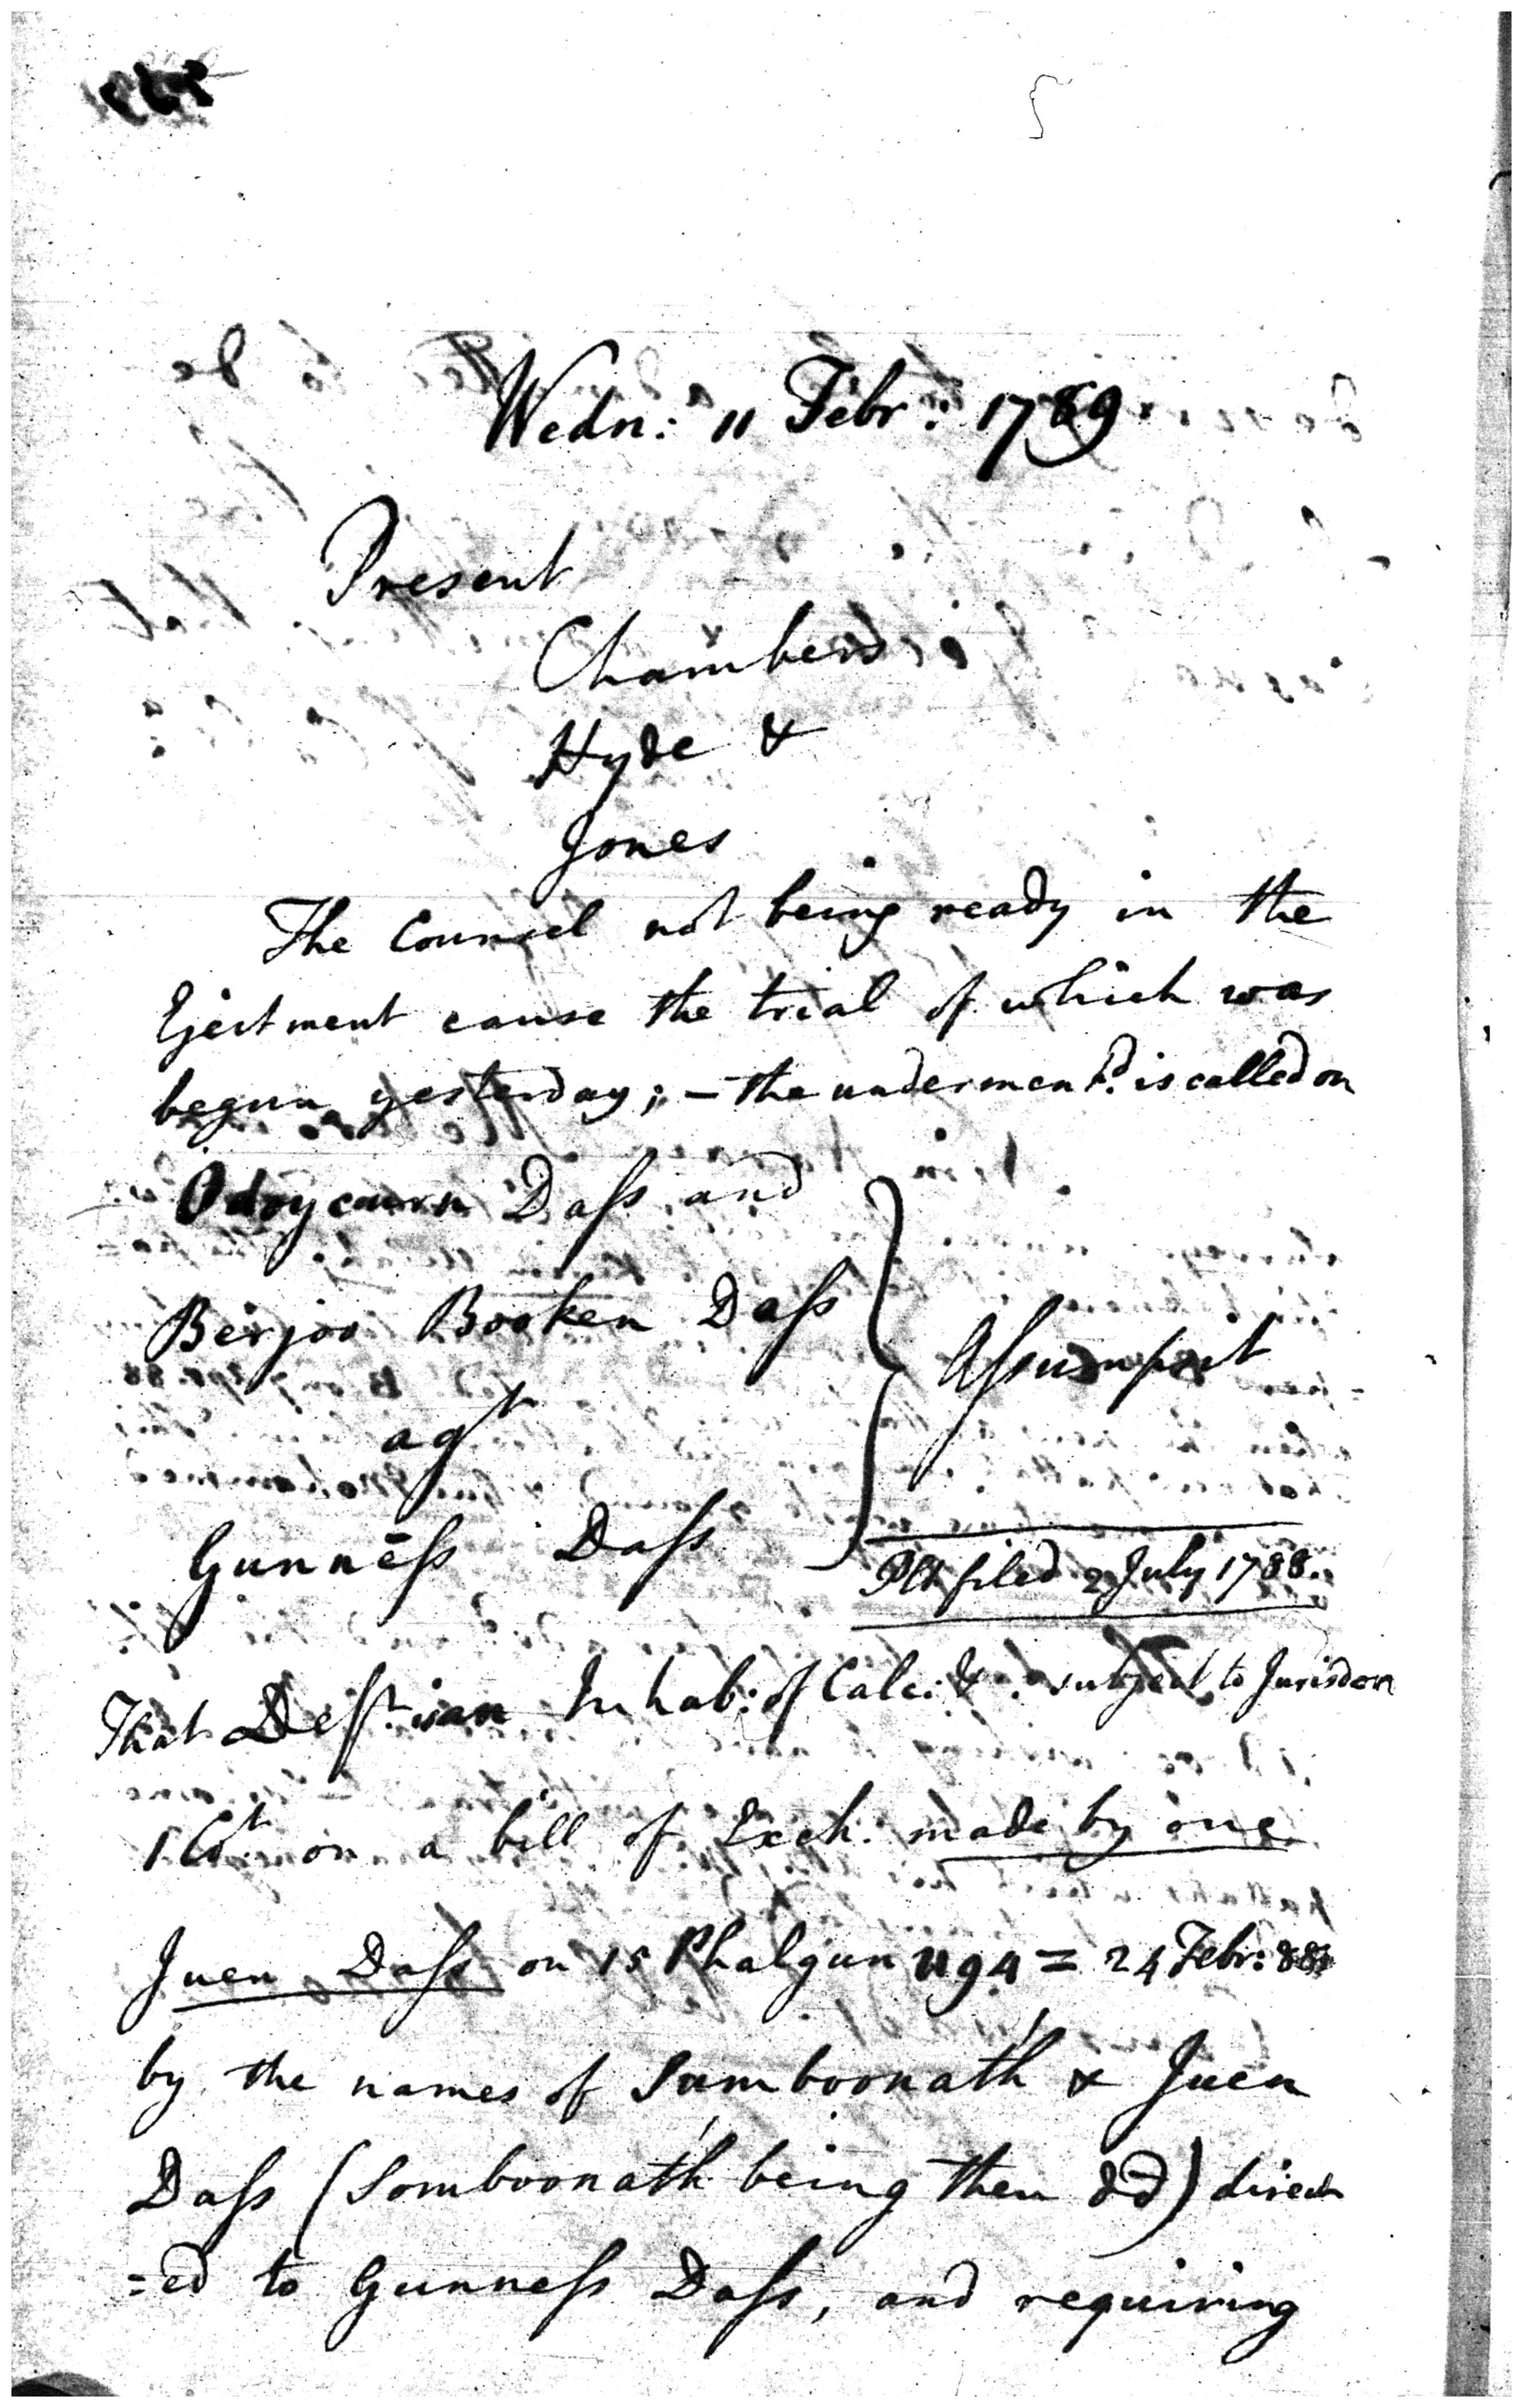 Wedn: 11 Febr: 1789
Present
Chambers
Hyde &
Jones
The Counsel not being ready in the
Ejectment cause the trial of which was
begun yesterday; – the underment.d is called on
Odoycurn Dass and
Berjoo Booken Dass
Assumpsit
agt
Gunness Dass
Plt filed 2 July 1788.
That Deft. is an Inhab: of Calc: & subject to Jurisdon
1 Ct. on a bill of Exch. made by one
Juen Dass on 15 Phalgun 1194 = 24 Febr: 88
by the names of Sumboonath & Juen
Dass (Somboonath being then dd) direct
=ed to Gunness Dass, and requiring